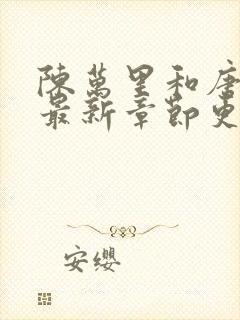 陳萬里和唐
最新章節更
安纓